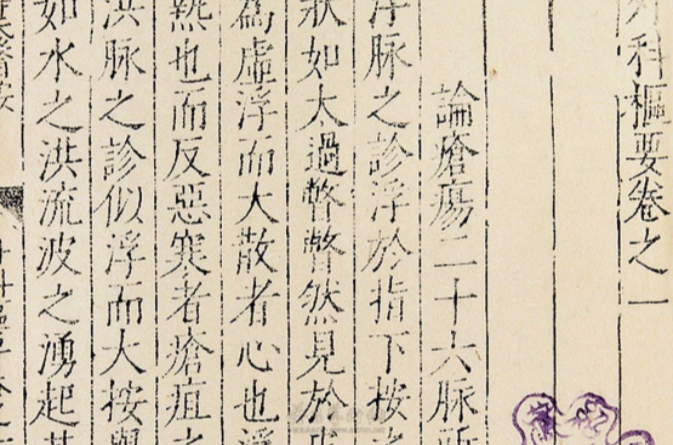 外科樞要卷之一
論瘡瘍二十六脉所
浮脉之診浮於指下按之
狀如太過瞥瞥然見於皮
為虛浮而大散者心也浮
熱也而反惡寒者瘡疽之
洪脉之診似浮而大按舉
如水之洪流波之湧起其